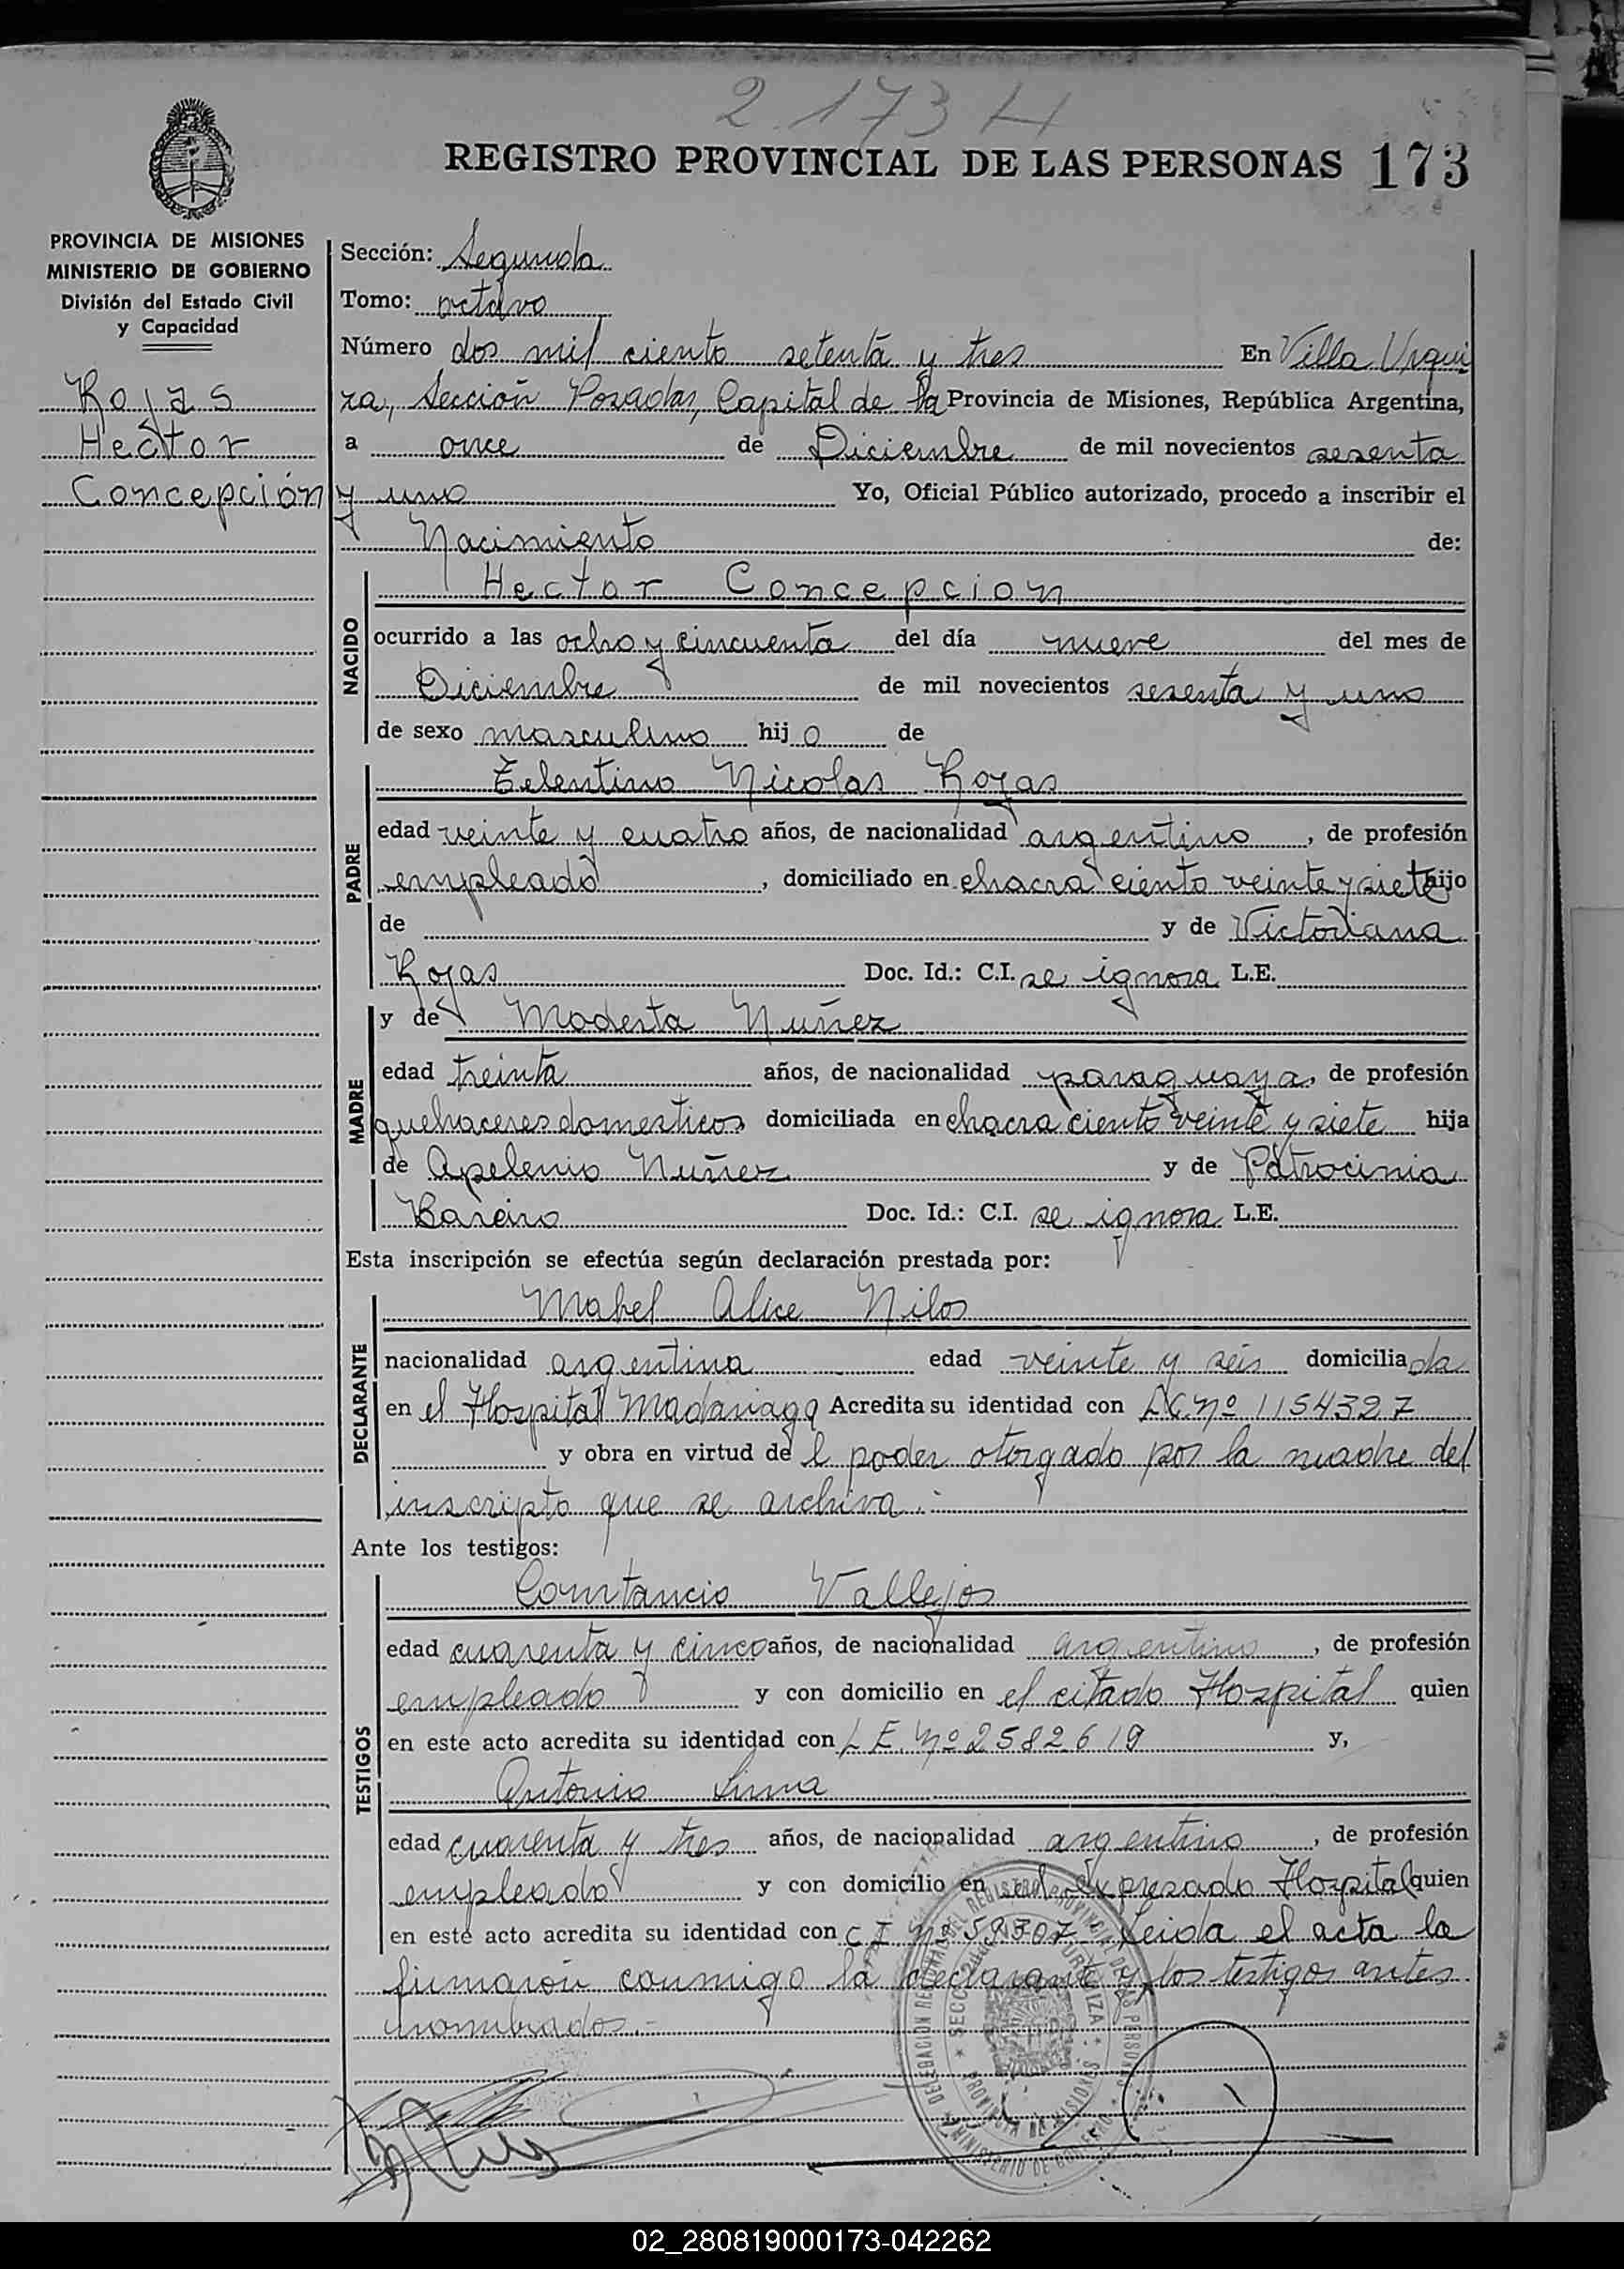 2.173 H
REGISTRO PROVINCIAL DE LAS PERSONAS 173
PROVINCIA DE MISIONES
MINISTERIO DE GOBIERNO
División del Estado Civil
y Capacidad
Rojas
Hector
Concepción
Sección: Segunda
Tomo: octavo
Número dos mil ciento setenta y tres En Villa Urqui
za, Sección Posadas, Capital de la Provincia de Misiones, República Argentina,
a once de Diciembre de mil novecientos sesenta
y uno Yo, Oficial Público autorizado, procedo a inscribir el
Nacimiento de:
NACIDO
Hector Concepcion
ocurrido a las ocho y cincuenta del día nueve del mes de
Diciembre de mil novecientos sesenta y uno
de sexo masculino hij o de
PADRE
Nicolas Rojas
edad veinte y cuatro años, de nacionalidad argentino, de profesión
empleado, domiciliado en chacra ciento veinte y siete hijo
de y de Victoriana
Rojas Doc. Id.: C.I. se ignora L.E.
MADRE
y de Modesta Nuñez
edad treinta años, de nacionalidad paraguaya, de profesión
quehaceres domesticos domiciliada en chacra ciento veinte y siete hija
de Apelenio Nuñez y de Patrocinia
Bareiro Doc. Id.: C.I. se ignora L.E.
Esta inscripción se efectúa según declaración prestada por:
DECLARANTE
Mabel Alice Nilos
nacionalidad argentina edad veinte y seis domicilia da
en el Hospital Madariaga Acredita su identidad con L.C. nº 1154327
y obra en virtud de l poder otorgado por la madre del
inscripto que se archiva.-
Ante los testigos:
TESTIGOS
Constancio Vallejos
edad cuarenta y cinco años, de nacionalidad argentino, de profesión
empleado y con domicilio en el citado Hospital quien
en este acto acredita su identidad con L E. nº 2582619 y,
Antonio Lima
edad cuarenta y tres años, de nacionalidad argentino, de profesión
empleado y con domicilio en el expresado Hospital quien
en este acto acredita su identidad con C I nº 59307 Leida el acta la
firmaron conmigo la declarante y los testigos antes
nombrados.-
02_280819000173-042262